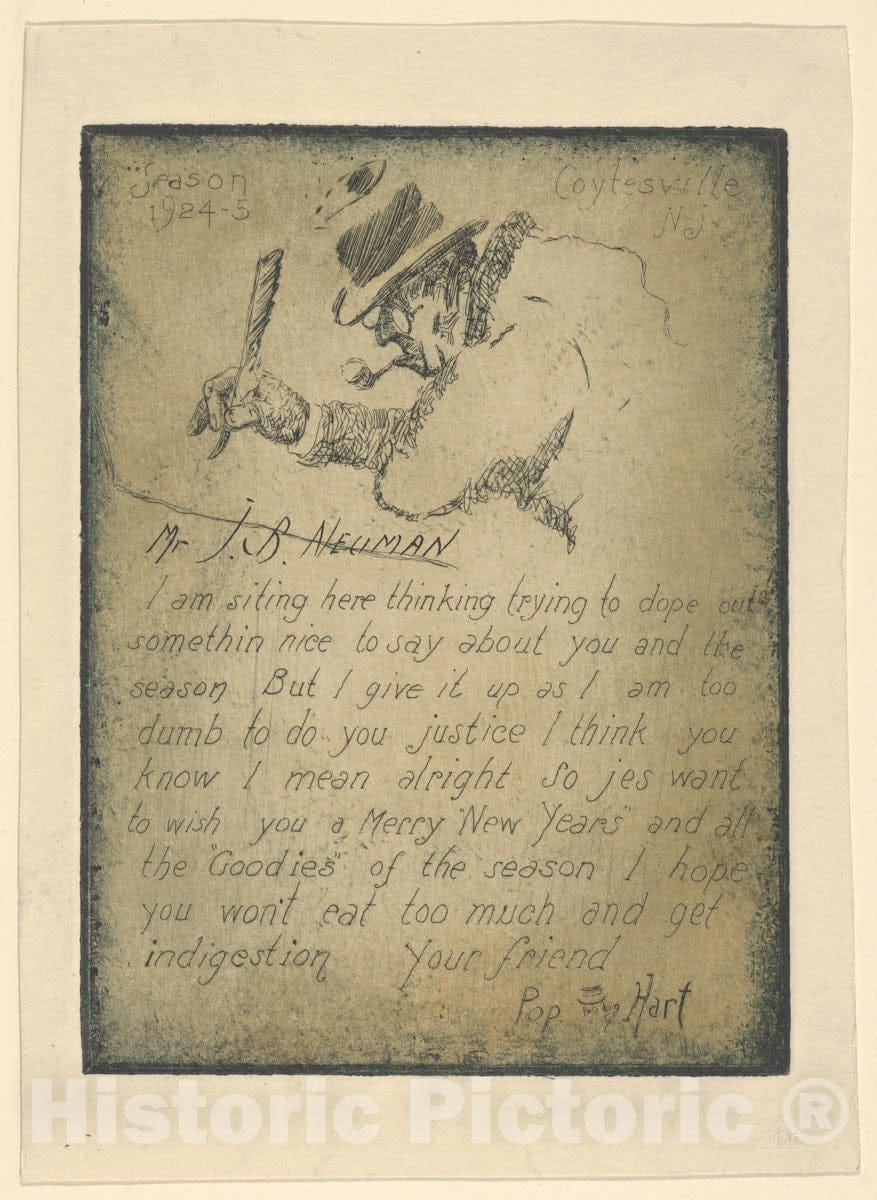 Season
1924-5
Coytesville
N.J.
Mr J.B. NEUMAN
I am siting here thinking trying to dope out
somethin nice to say about you and the
season But I give it up as I am too
dumb to do you justice I think you
know I mean alright So jes want
to wish you a Merry "New Years" and all
the "Goodies" of the season I hope
you won't eat too much and get
indigestion Your friend
Pop Hart
Historic Pictoric ®